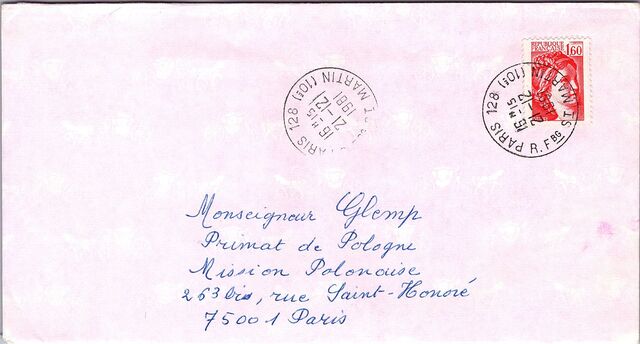 REPUBLIQUE
FRANÇAISE
1,60
PARIS 128 (10e) R. FBG ST MARTIN
16 H 15
21-12
1981
PARIS 128 (10e) R. FBG ST MARTIN
H 15
21-12
Monseigneur Glemp
Primat de Pologne
Mission Polonaise
263 bis, rue Saint-Honoré
75001 Paris